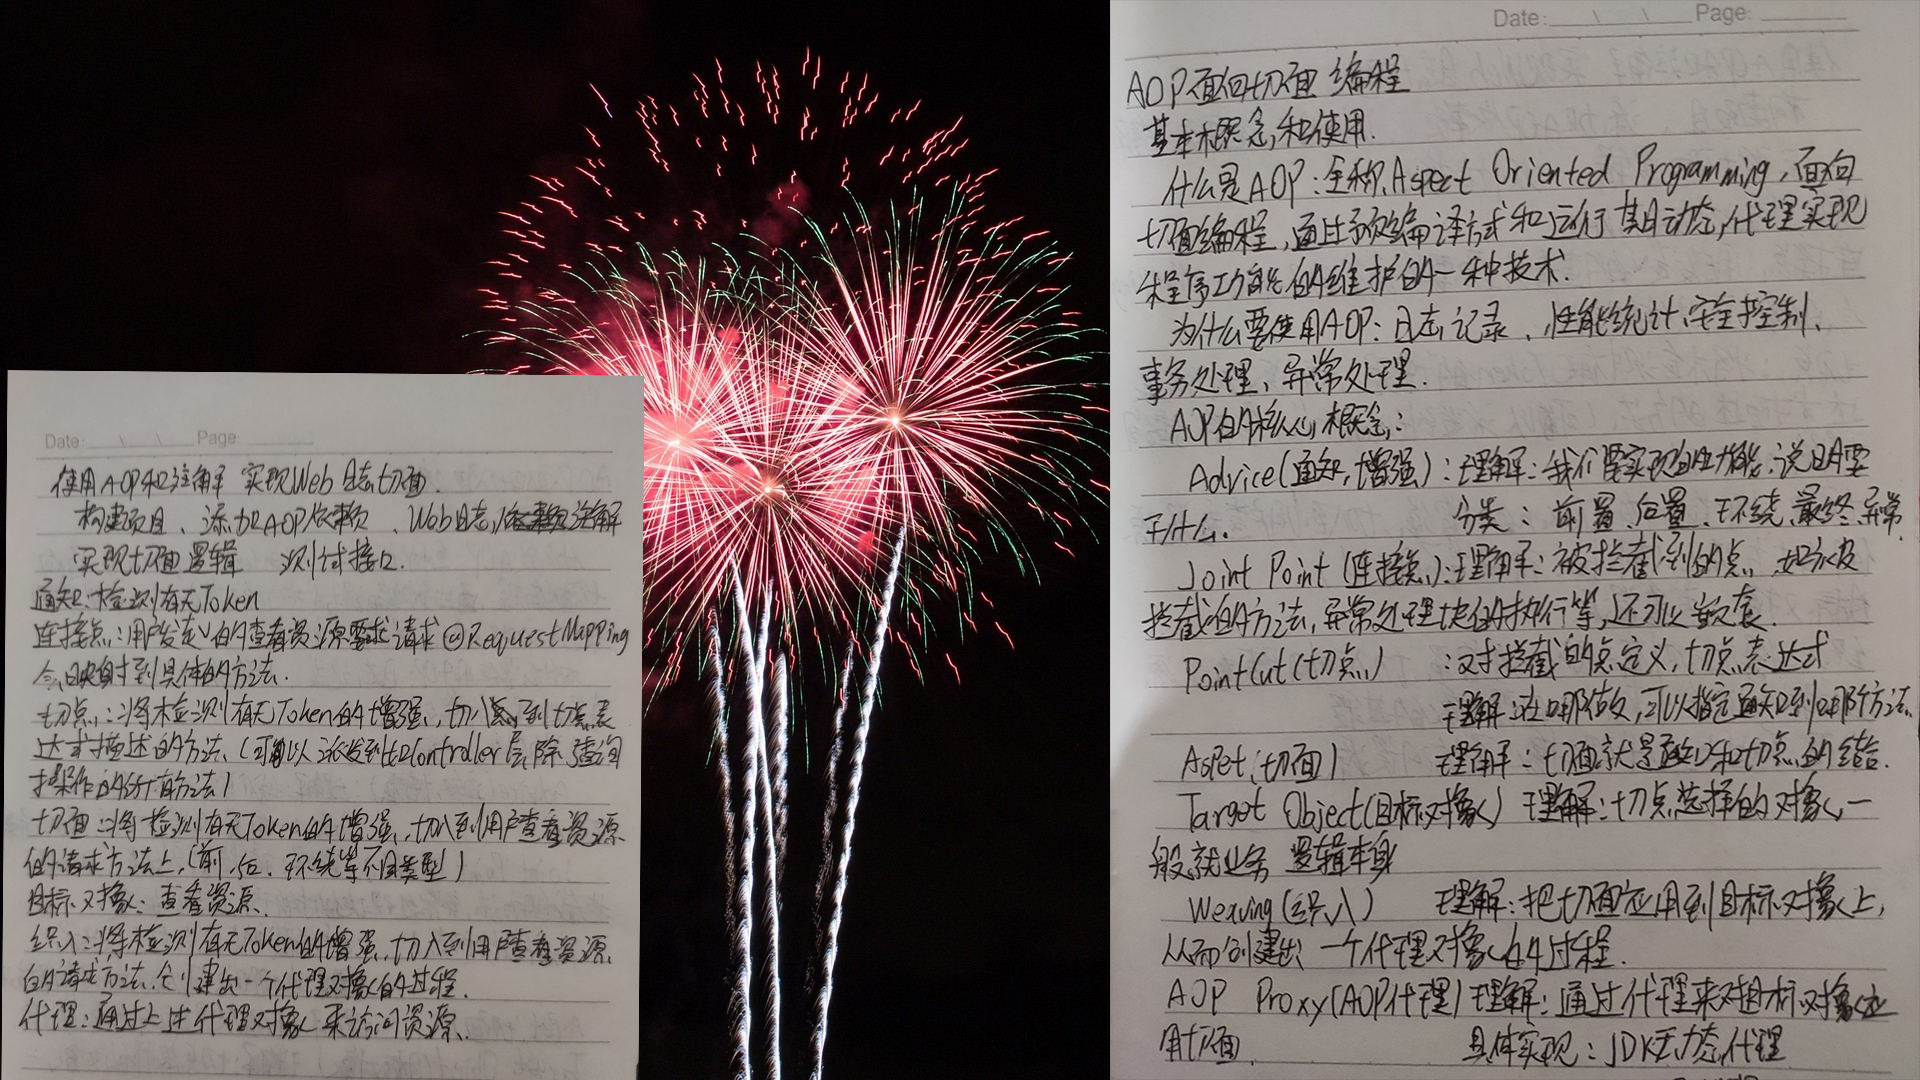 Date: Page:
使用AOP和注解 实现Web日志切面.
构建项目、添加AOP依赖、Web日志注解
实现切面逻辑 测试接口.
通知:检测有无Token
连接点:用户发起的查看资源要求请求@RequestMapping
会映射到具体的方法.
切点:将检测有无Token的增强,切入到切点表
达式描述的方法.(可以Controller层,除查询
操作的所有方法)
切面:将检测有无Token的增强,切入到用户查看资源
的请求方法上,(前、后、环绕等不同类型)
目标对象:查看资源.
织入:将检测有无Token的增强,切入到用户查看资源
的请求方法.创建出一个代理对象的过程.
代理:通过上生代理对象来访问资源.
Date: Page:
AOP面向切面编程
基本概念和使用.
什么是AOP:全称Aspect Oriented Programming,面向
切面编程,通过预编译方式和运行期动态代理实现
程序功能的维护的一种技术.
为什么要使用AOP:日志记录、性能统计、安全控制、
事务处理、异常处理.
AOP的核心概念:
Advice(通知,增强):理解:我们要实现的功能.说明要
干什么. 分类:前置、后置、环绕、最终、异常.
Joint Point(连接点):理解:被拦截到的点,如被
拦截的方法,异常处理块的执行等,还可以嵌套.
PointCut(切点) :对拦截的点定义,切点表达式
理解:在哪做,可以指定通知到哪个方法.
Aspet(切面) 理解:切面就是通知和切点的结合.
Target Object(目标对象) 理解:切点选择的对象,一
般就业务逻辑本身
Weaving(织入) 理解:把切面应用到目标对象上,
从而创建出一个代理对象的过程.
AOP Proxy(AOP代理)理解:通过代理来对目标对象应
用切面. 具体实现:JDK动态代理